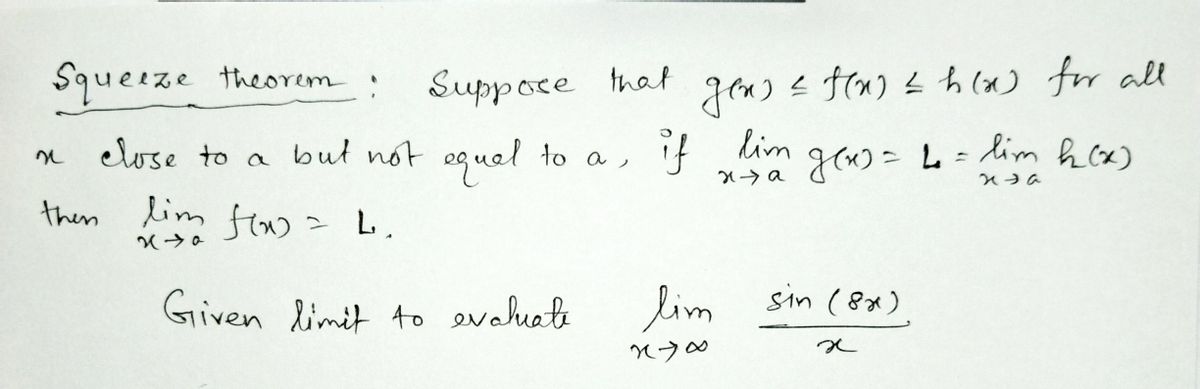 Squeeze theorem : Suppose that g(x) ≤ f(x) ≤ h(x) for all
x close to a but not equal to a, if lim x→a g(x) = L = lim x→a h(x)
then lim x→a f(x) = L.
Given limit to evaluate lim x→∞ sin (8x) / x